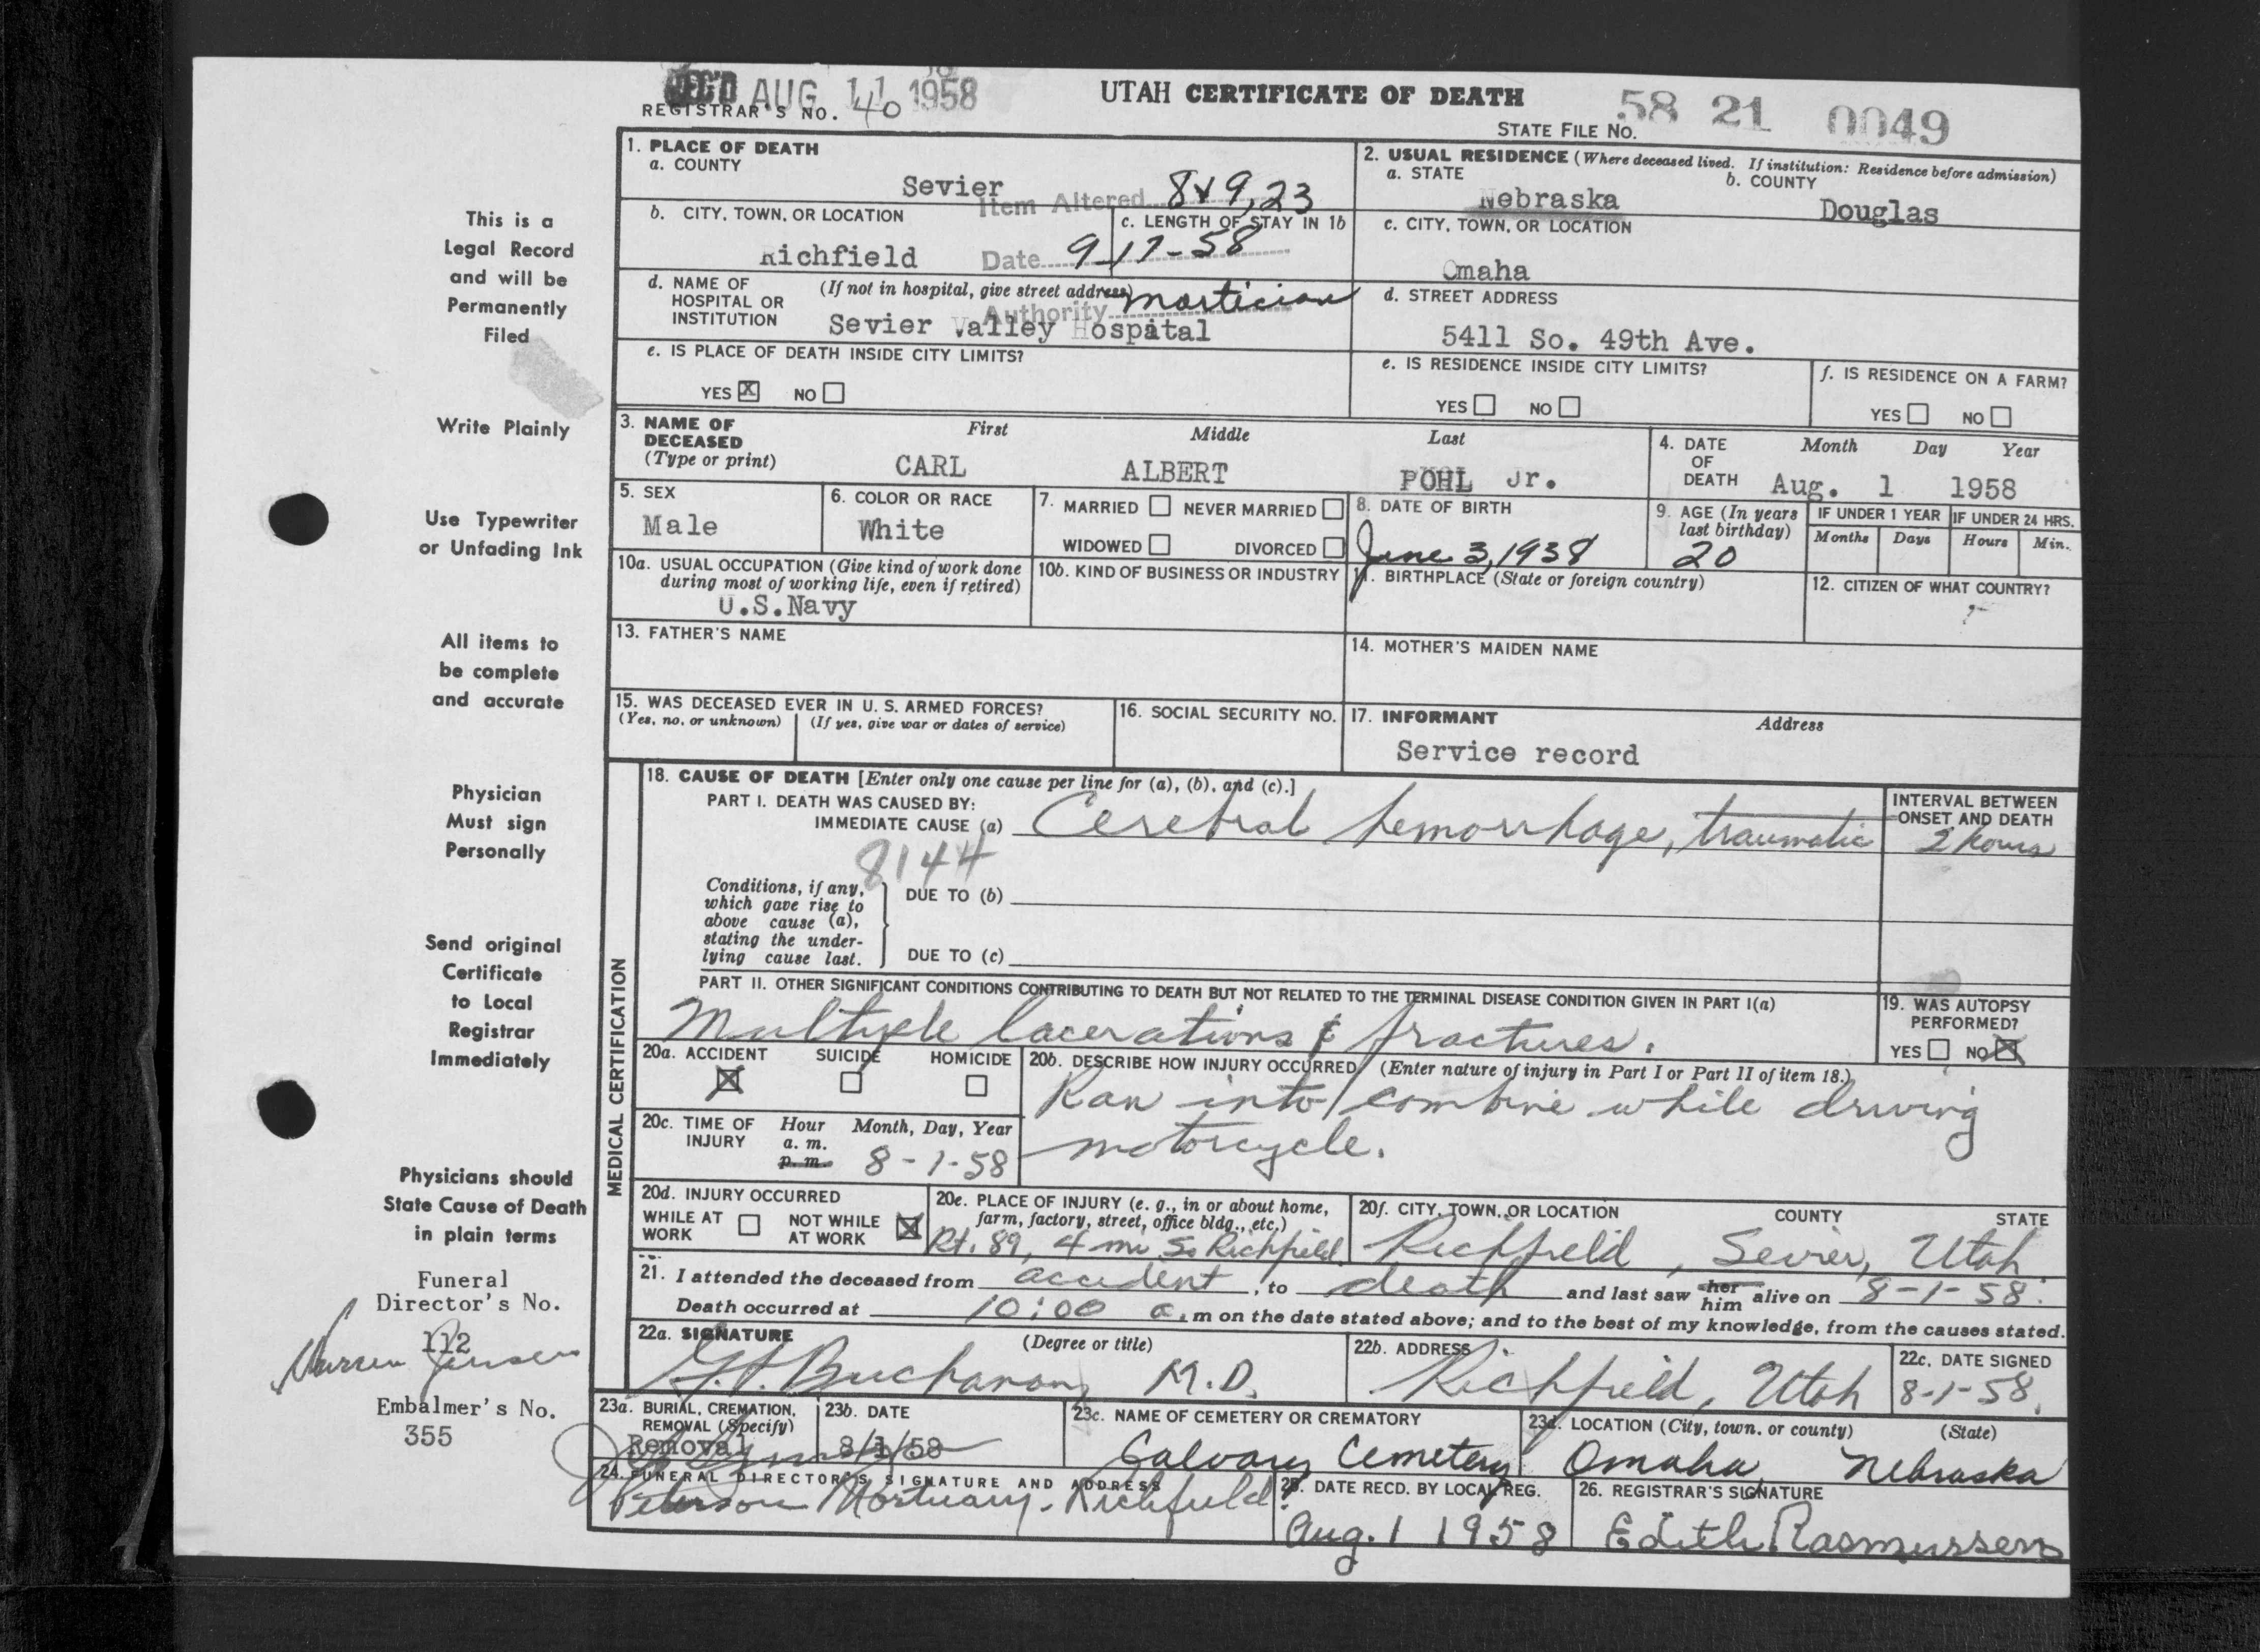 REC'D AUG 11 1958
REGISTRAR'S NO. 40
UTAH CERTIFICATE OF DEATH
STATE FILE NO. 58 21 0049
1. PLACE OF DEATH
a. COUNTY
Sevier
Item Altered 8 & 9, 23
2. USUAL RESIDENCE (Where deceased lived. If institution: Residence before admission)
a. STATE
Nebraska
b. COUNTY
Douglas
b. CITY, TOWN, OR LOCATION
Richfield
c. LENGTH OF STAY IN 1b
Date 9-17-58
c. CITY, TOWN, OR LOCATION
Omaha
d. NAME OF HOSPITAL OR INSTITUTION
(If not in hospital, give street address)
Authority mortician
Sevier Valley Hospital
d. STREET ADDRESS
5411 So. 49th Ave.
e. IS PLACE OF DEATH INSIDE CITY LIMITS?
YES X NO
e. IS RESIDENCE INSIDE CITY LIMITS?
YES NO
f. IS RESIDENCE ON A FARM?
YES NO
3. NAME OF DECEASED (Type or print)
First Middle Last
CARL ALBERT POHL Jr.
4. DATE OF DEATH
Month Day Year
Aug. 1 1958
5. SEX
Male
6. COLOR OR RACE
White
7. MARRIED NEVER MARRIED
WIDOWED DIVORCED
8. DATE OF BIRTH
June 3, 1938
9. AGE (In years last birthday)
20
IF UNDER 1 YEAR
Months Days
IF UNDER 24 HRS.
Hours Min.
10a. USUAL OCCUPATION (Give kind of work done during most of working life, even if retired)
U.S.Navy
10b. KIND OF BUSINESS OR INDUSTRY
11. BIRTHPLACE (State or foreign country)
12. CITIZEN OF WHAT COUNTRY?
13. FATHER'S NAME
14. MOTHER'S MAIDEN NAME
15. WAS DECEASED EVER IN U. S. ARMED FORCES?
(Yes, no, or unknown) (If yes, give war or dates of service)
16. SOCIAL SECURITY NO.
17. INFORMANT Address
Service record
MEDICAL CERTIFICATION
18. CAUSE OF DEATH [Enter only one cause per line for (a), (b), and (c).]
PART I. DEATH WAS CAUSED BY:
IMMEDIATE CAUSE (a) Cerebral hemorrhage, traumatic
INTERVAL BETWEEN ONSET AND DEATH
2 hours
8144
Conditions, if any, which gave rise to above cause (a), stating the underlying cause last.
DUE TO (b)
DUE TO (c)
PART II. OTHER SIGNIFICANT CONDITIONS CONTRIBUTING TO DEATH BUT NOT RELATED TO THE TERMINAL DISEASE CONDITION GIVEN IN PART I(a)
Multiple lacerations & fractures.
19. WAS AUTOPSY PERFORMED?
YES NO X
20a. ACCIDENT SUICIDE HOMICIDE
X
20b. DESCRIBE HOW INJURY OCCURRED (Enter nature of injury in Part I or Part II of item 18.)
Ran into combine while driving
motorcycle.
20c. TIME OF INJURY
Hour Month, Day, Year
a. m.
p. m. 8-1-58
20d. INJURY OCCURRED
WHILE AT WORK NOT WHILE AT WORK X
20e. PLACE OF INJURY (e. g., in or about home, farm, factory, street, office bldg., etc.)
Rt. 89, 4 mi So Richfield
20f. CITY, TOWN, OR LOCATION COUNTY STATE
Richfield, Sevier, Utah
21. I attended the deceased from accident, to death and last saw her him alive on 8-1-58.
Death occurred at 10:00 a.m on the date stated above; and to the best of my knowledge, from the causes stated.
22a. SIGNATURE (Degree or title)
Buchanan, M.D.
22b. ADDRESS
Richfield, Utah
22c. DATE SIGNED
8-1-58.
23a. BURIAL, CREMATION, REMOVAL (Specify)
Removal
23b. DATE
8/1/58
23c. NAME OF CEMETERY OR CREMATORY
Calvary Cemetery
23d. LOCATION (City, town, or county) (State)
Omaha, Nebraska
24. FUNERAL DIRECTOR'S SIGNATURE AND ADDRESS
Peterson Mortuary - Richfield
25. DATE RECD. BY LOCAL REG.
Aug. 1 1958
26. REGISTRAR'S SIGNATURE
Edith Rasmussen
This is a
Legal Record
and will be
Permanently
Filed
Write Plainly
Use Typewriter
or Unfading Ink
All items to
be complete
and accurate
Physician
Must sign
Personally
Send original
Certificate
to Local
Registrar
Immediately
Physicians should
State Cause of Death
in plain terms
Funeral
Director's No.
112
Warren Jensen
Embalmer's No.
355